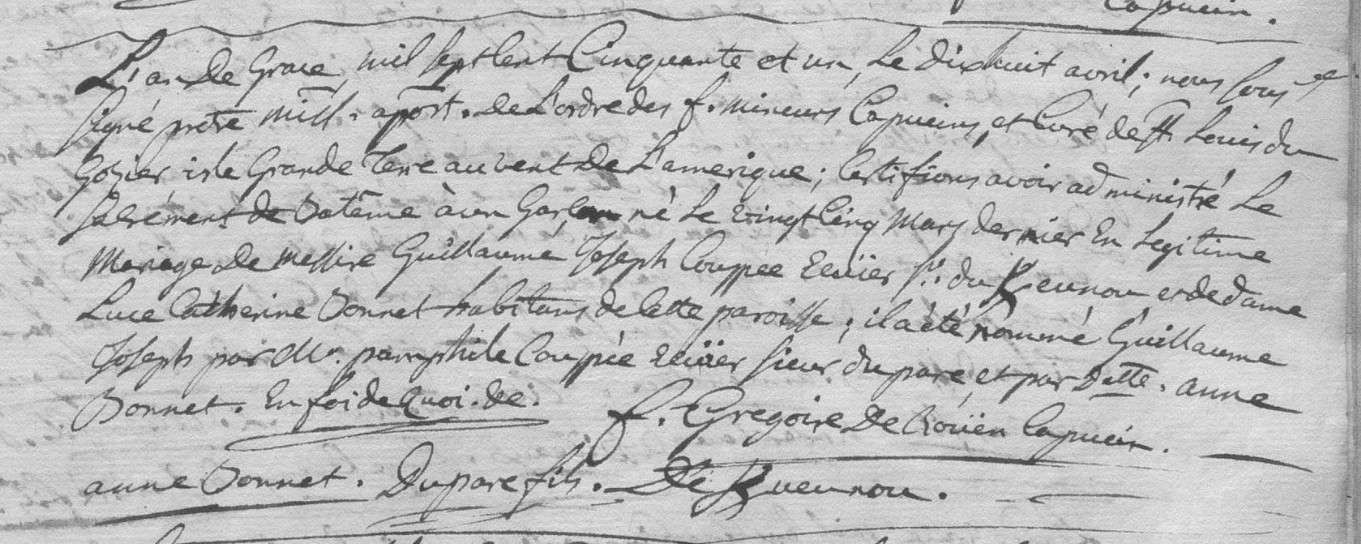 Capucin.
L'an De Grace mil sept Cent Cinquante et un, Le dixhuit avril; nous sous
signé pretre miss. apost. de L'ordre des f. mineurs Capucins, et Curé de st Louis du
Gozier isle Grande Terre au vent de L'amerique; Certifions avoir administré Le
sacrement de Batême à un Garçon né Le vingt Cinq Mars dernier En Legitime
Mariage de Messire Guillaume Joseph Couppée Ecüier Sr. du et de dame
Luce Catherine Bonnet habitans de Cette paroisse; il a été nommé Guillaume
Joseph par Mr. pamphile Couppée Ecüier Sieur du parc, et par Delle. anne
Bonnet. En foi de Quoi. &c.
f. Gregoire De Roüen Capucin.
anne Bonnet. Duparc fils. De